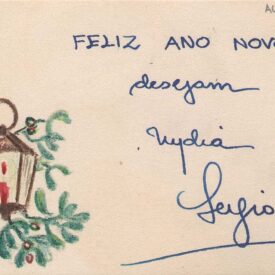 FELIZ ANO NOVO
desejam
Nydia
Sergio